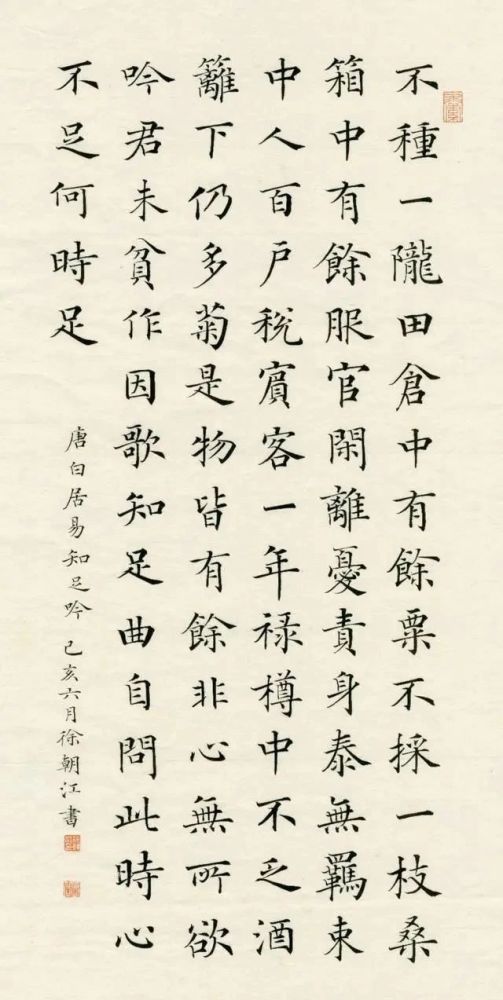 不種一隴田倉中有餘粟不採一枝桑
箱中有餘服官閑離憂責身泰無羈束
中人百户税賓客一年禄樽中不乏酒
籬下仍多菊是物皆有餘非心無所欲
吟君未貧作因歌知足曲自問此時心
不足何時足
唐白居易知足吟 己亥六月徐朝江書